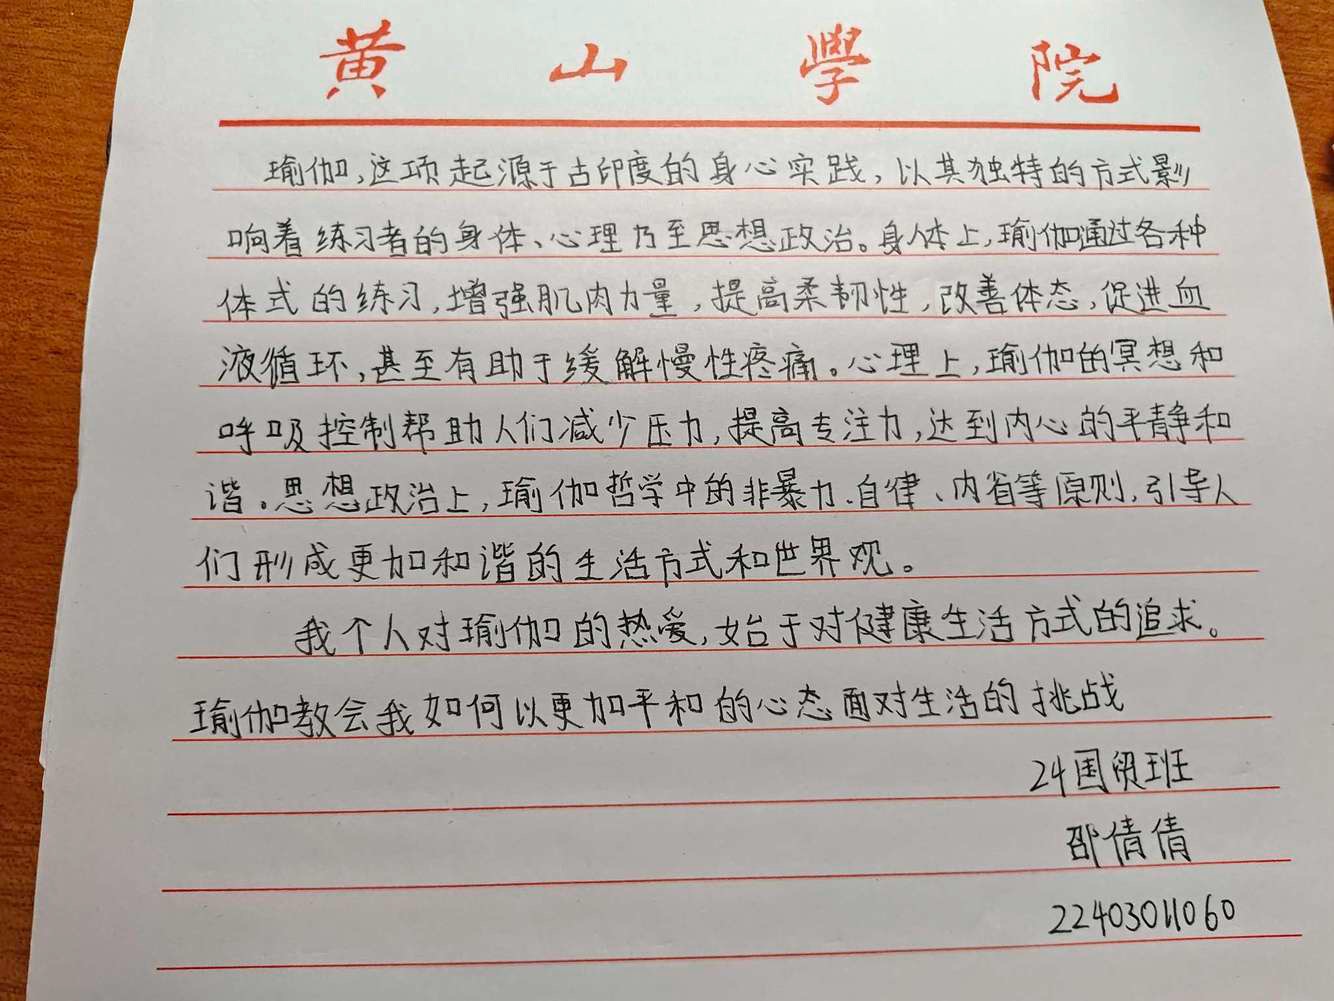 黄山學院
瑜伽,这项起源于古印度的身心实践,以其独特的方式影
响着练习者的身体、心理乃至思想政治。身体上,瑜伽通过各种
体式的练习,增强肌肉力量,提高柔韧性,改善体态,促进血
液循环,甚至有助于缓解慢性疼痛。心理上,瑜伽的冥想和
呼吸控制帮助人们减少压力,提高专注力,达到内心的平静和
谐。思想政治上,瑜伽哲学中的非暴力、自律、内省等原则,引导人
们形成更加和谐的生活方式和世界观。
我个人对瑜伽的热爱,始于对健康生活方式的追求。
瑜伽教会我如何以更加平和的心态面对生活的挑战
24国贸班
邵倩倩
22403011060